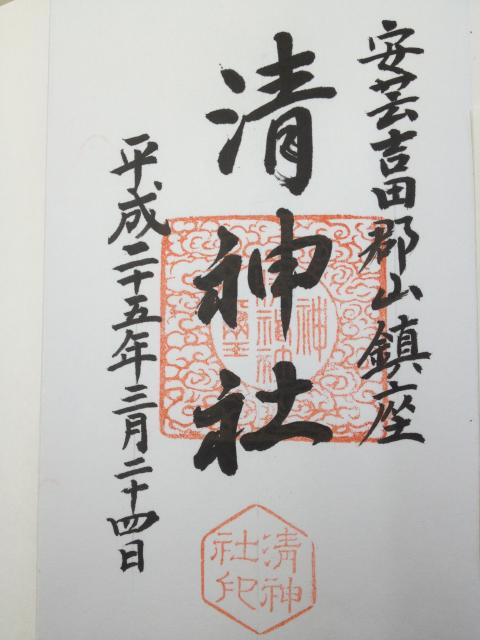 安芸吉田郡山鎮座
清神社
平成二十五年三月二十四日
清神
社印